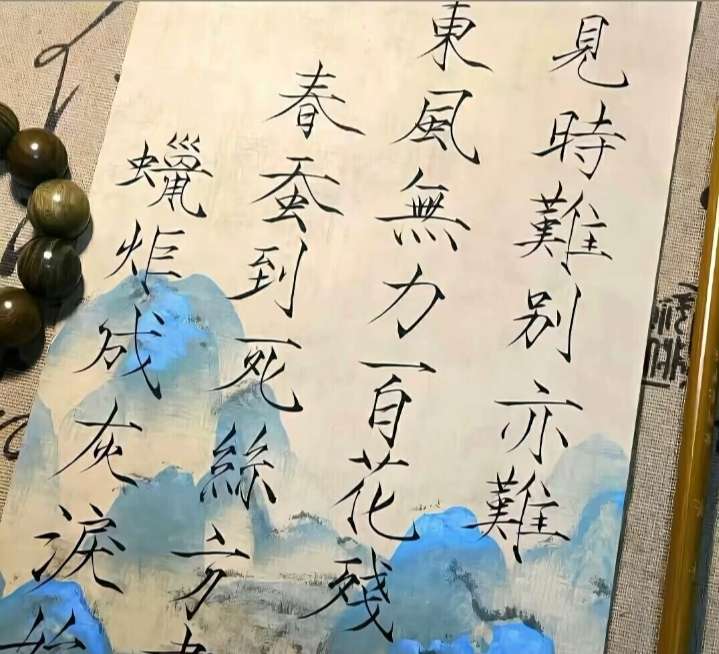 見時難别亦難
東風無力百花殘
春蚕到死絲方
蠟炬成灰淚始